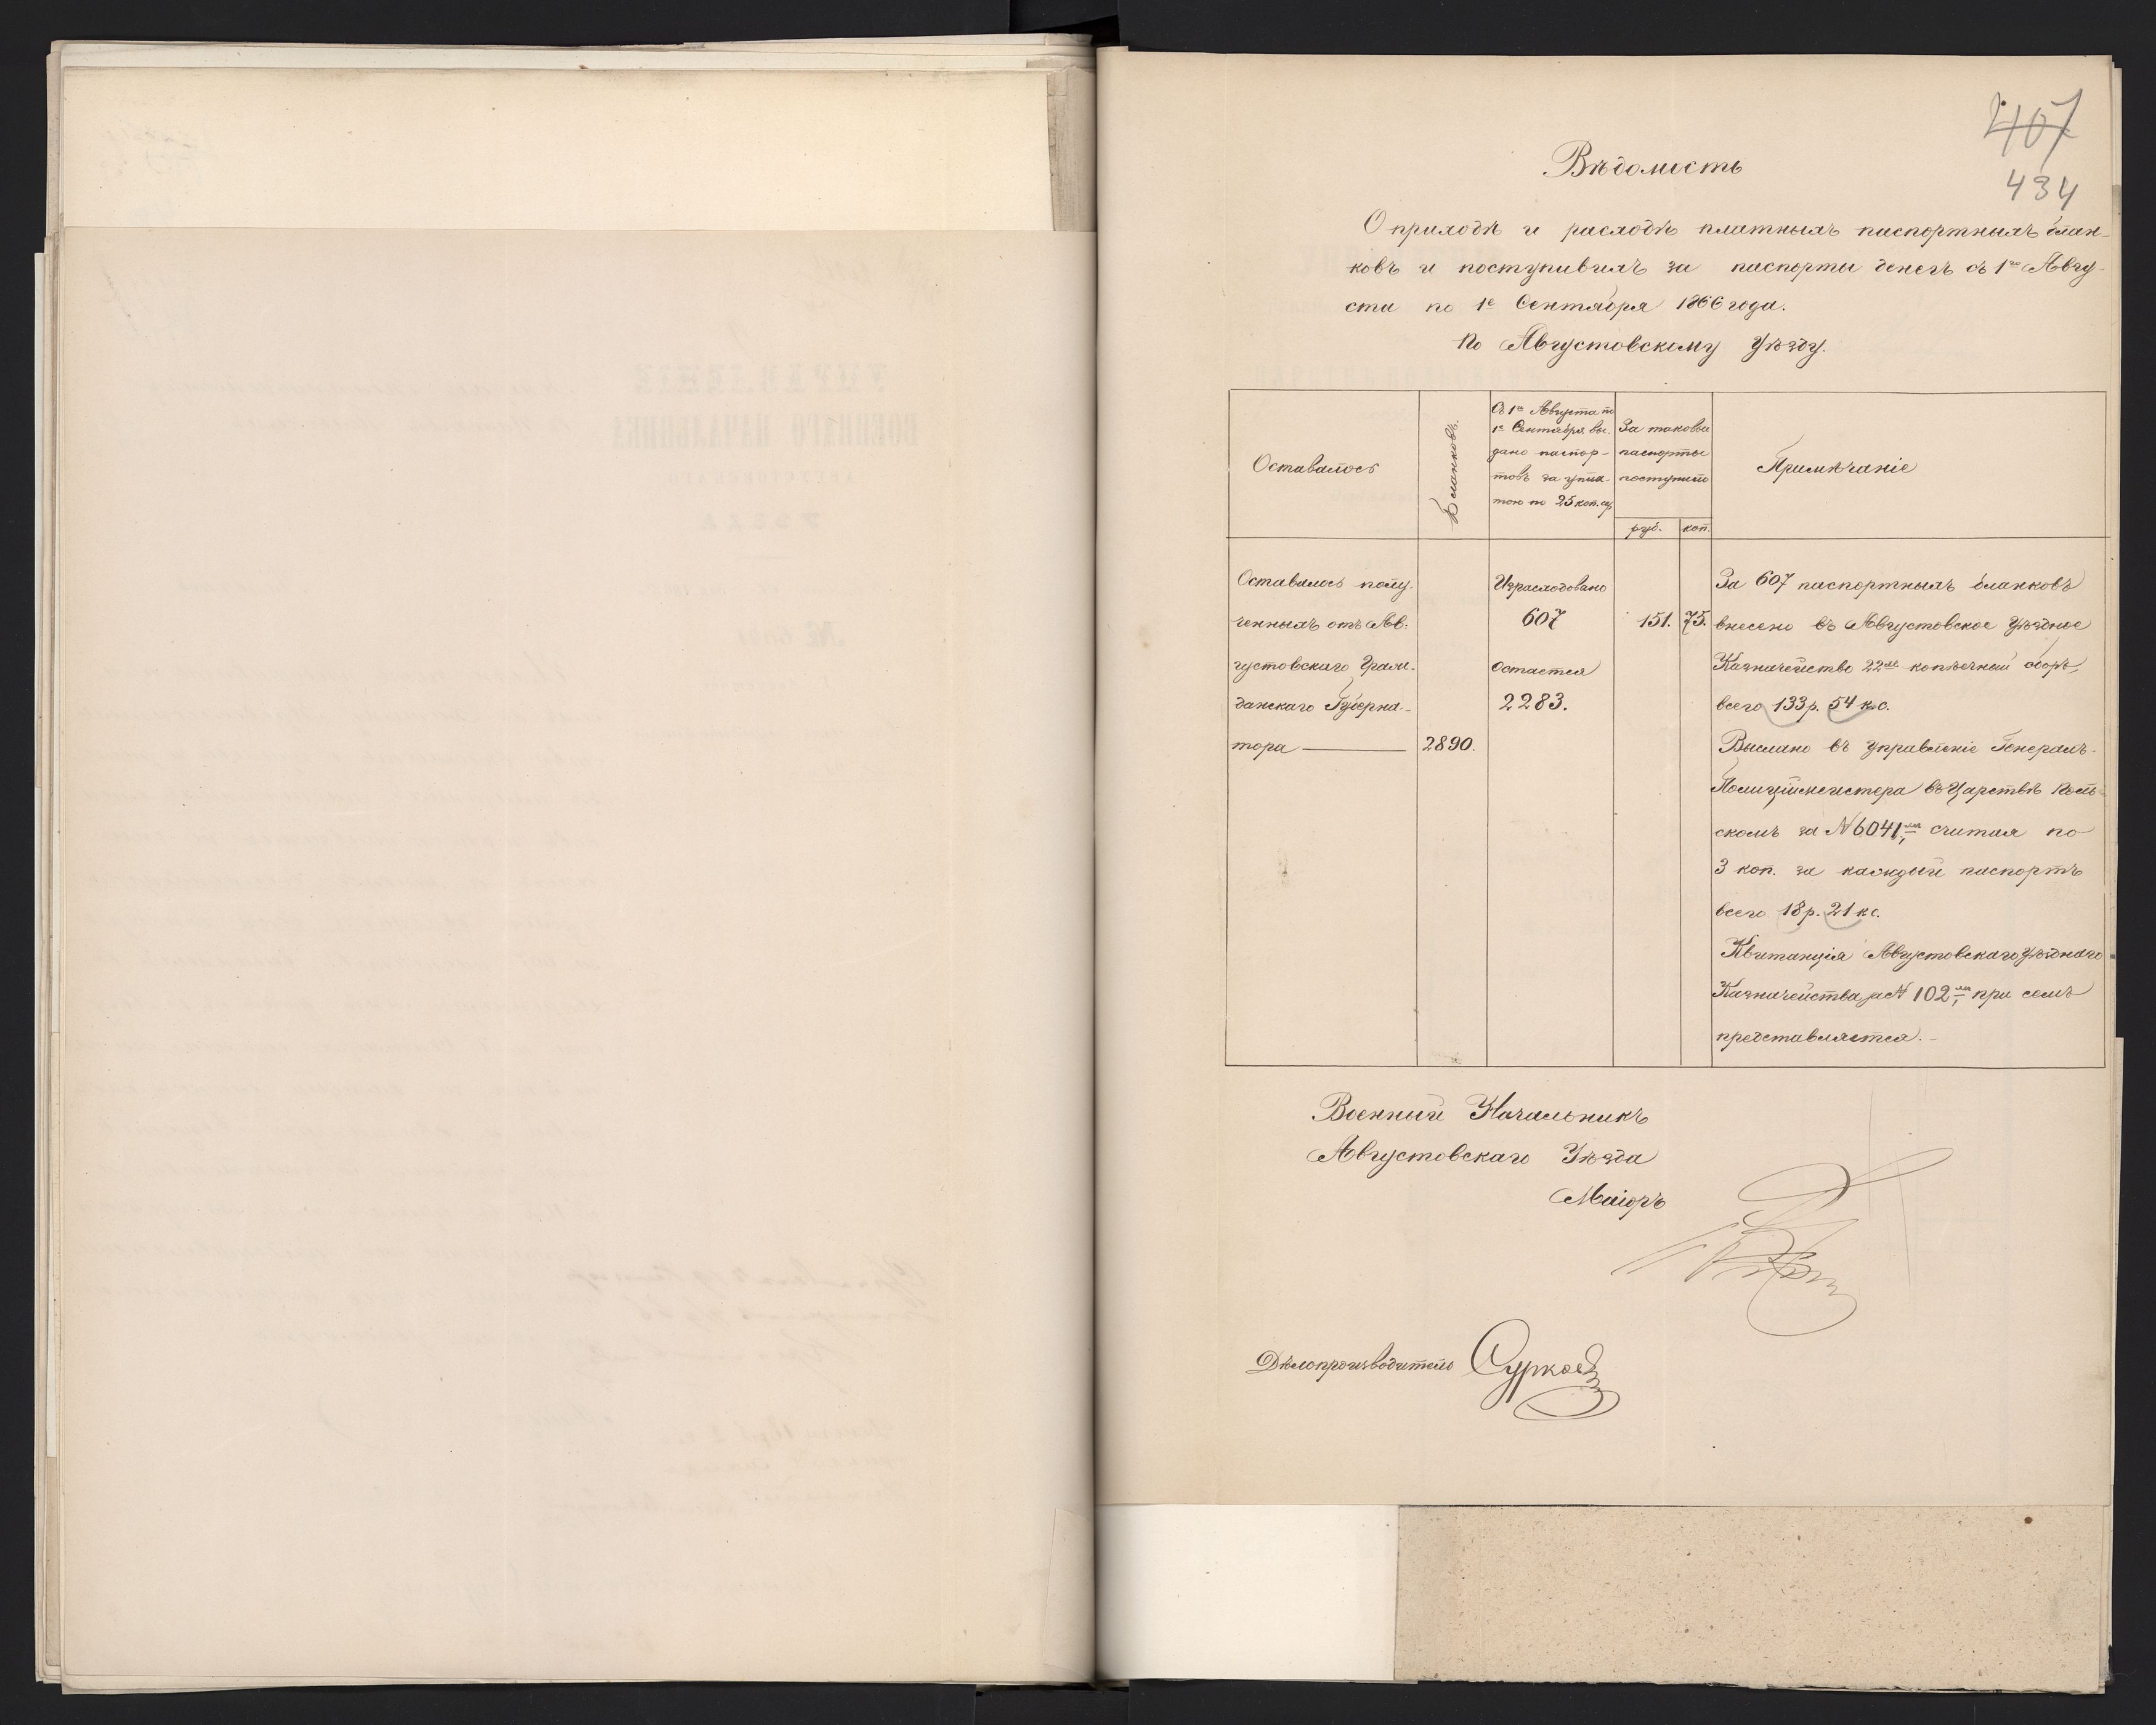 407
434
Вѣдомость
О приходѣ и расходѣ платныхъ паспортныхъ блан-
ковъ и поступившихъ за паспорты денегъ съ 1го Авгу-
ста по 1е Сентября 1866 года.
По Августовскому Уѣзду.
Оставалось
Бланковъ.
Съ 1го Августа по
1е Сентября вы-
дано паспор-
товъ за упла-
тою по 25 коп. сер.
За таковые
паспорты
поступило
руб.
коп.
Примѣчаніе
Оставалось полу-
ченныхъ отъ Ав-
густовскаго Граж-
данскаго Губерна-
тора 2890.
Израсходовано
607
Остается
2283.
151. 75.
За 607 паспортныхъ бланковъ
внесено въ Августовское Уѣздное
Казначейство 22хъ копѣечный сборъ,
всего 133 р. 54 к. с.
Выслано въ Управленіе Генералъ-
Полиціймейстера въ Царствѣ Поль-
скомъ за № 6041мъ, считая по
3 коп. за каждый паспортъ
всего 18 р. 21 к с.
Квитанція Августовскаго Уѣзднаго
Казначейства за № 102мъ, при семъ
представляется.
Военный Начальникъ
Августовскаго Уѣзда
Маіоръ
Дѣлопроизводитель Сурковъ
УПРАВЛЕНІЕ
ВОЕННАГО НАЧАЛЬНИКА
АВГУСТОВСКАГО
УѢЗДА